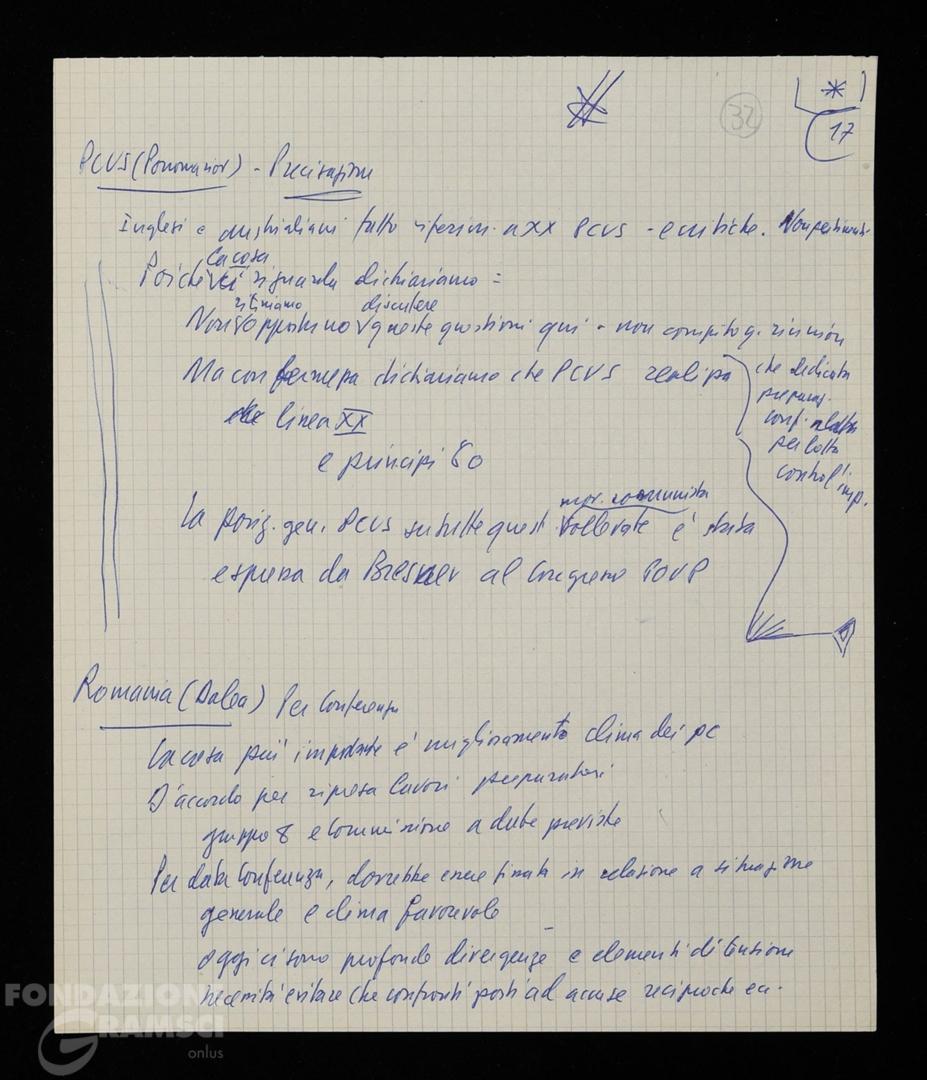 32
17
PCUS (Ponomariov) - Precisazione
Inglesi e australiani fatto riferim. a XX PCUS - e critiche. Non pertinenti
La cosa
Poiché ci riguarda dichiariamo =
riteniamo discutere
Non opportuno queste questioni qui - non compito q. riunione
Ma con fermezza dichiariamo che PCUS realizza
linea XX
e principi 60
che dedicata
preparaz.
conf.
per lotta
contro l'imp.
mov. comunista
La posiz. gen. PCUS su tutte quest. sollevate è stata
espressa da Bresnev al Congresso POUP
Romania (Dalea) Per Conferenza
La cosa più importante è miglioramento clima dei pc
D'accordo per ripresa lavori preparatori
gruppo 8 e Commissione a date previste
Per data Conferenza, dovrebbe essere fissata in relazione a situazione
generale e clima favorevole
oggi ci sono profonde divergenze e elementi di tensione
necessità evitare che confronti porti ad accuse reciproche ecc.
FONDAZIONE
GRAMSCI
onlus